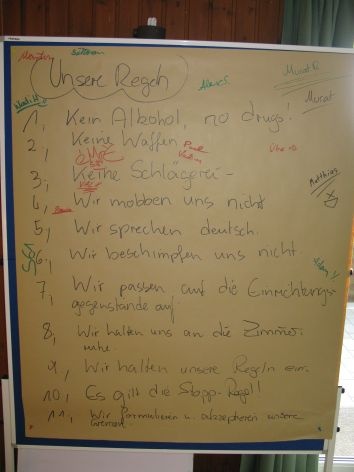 Unsere Regeln
Murat R.
Murat
Matthias
1, Kein Alkohol, no drugs!
2, Keine Waffen
3, Keine Schlägerei -
4, Wir mobben uns nicht
5, Wir sprechen deutsch.
6, Wir beschimpfen uns nicht.
7, Wir passen auf die Einrichtungs-
gegenstände auf.
8, Wir halten uns an die Zimmer-
ruhe.
9, Wir halten unsere Regeln ein.
10, Es gilt die Stopp-Regel!
11, Wir formulieren u. akzeptieren unsere
Grenzen.